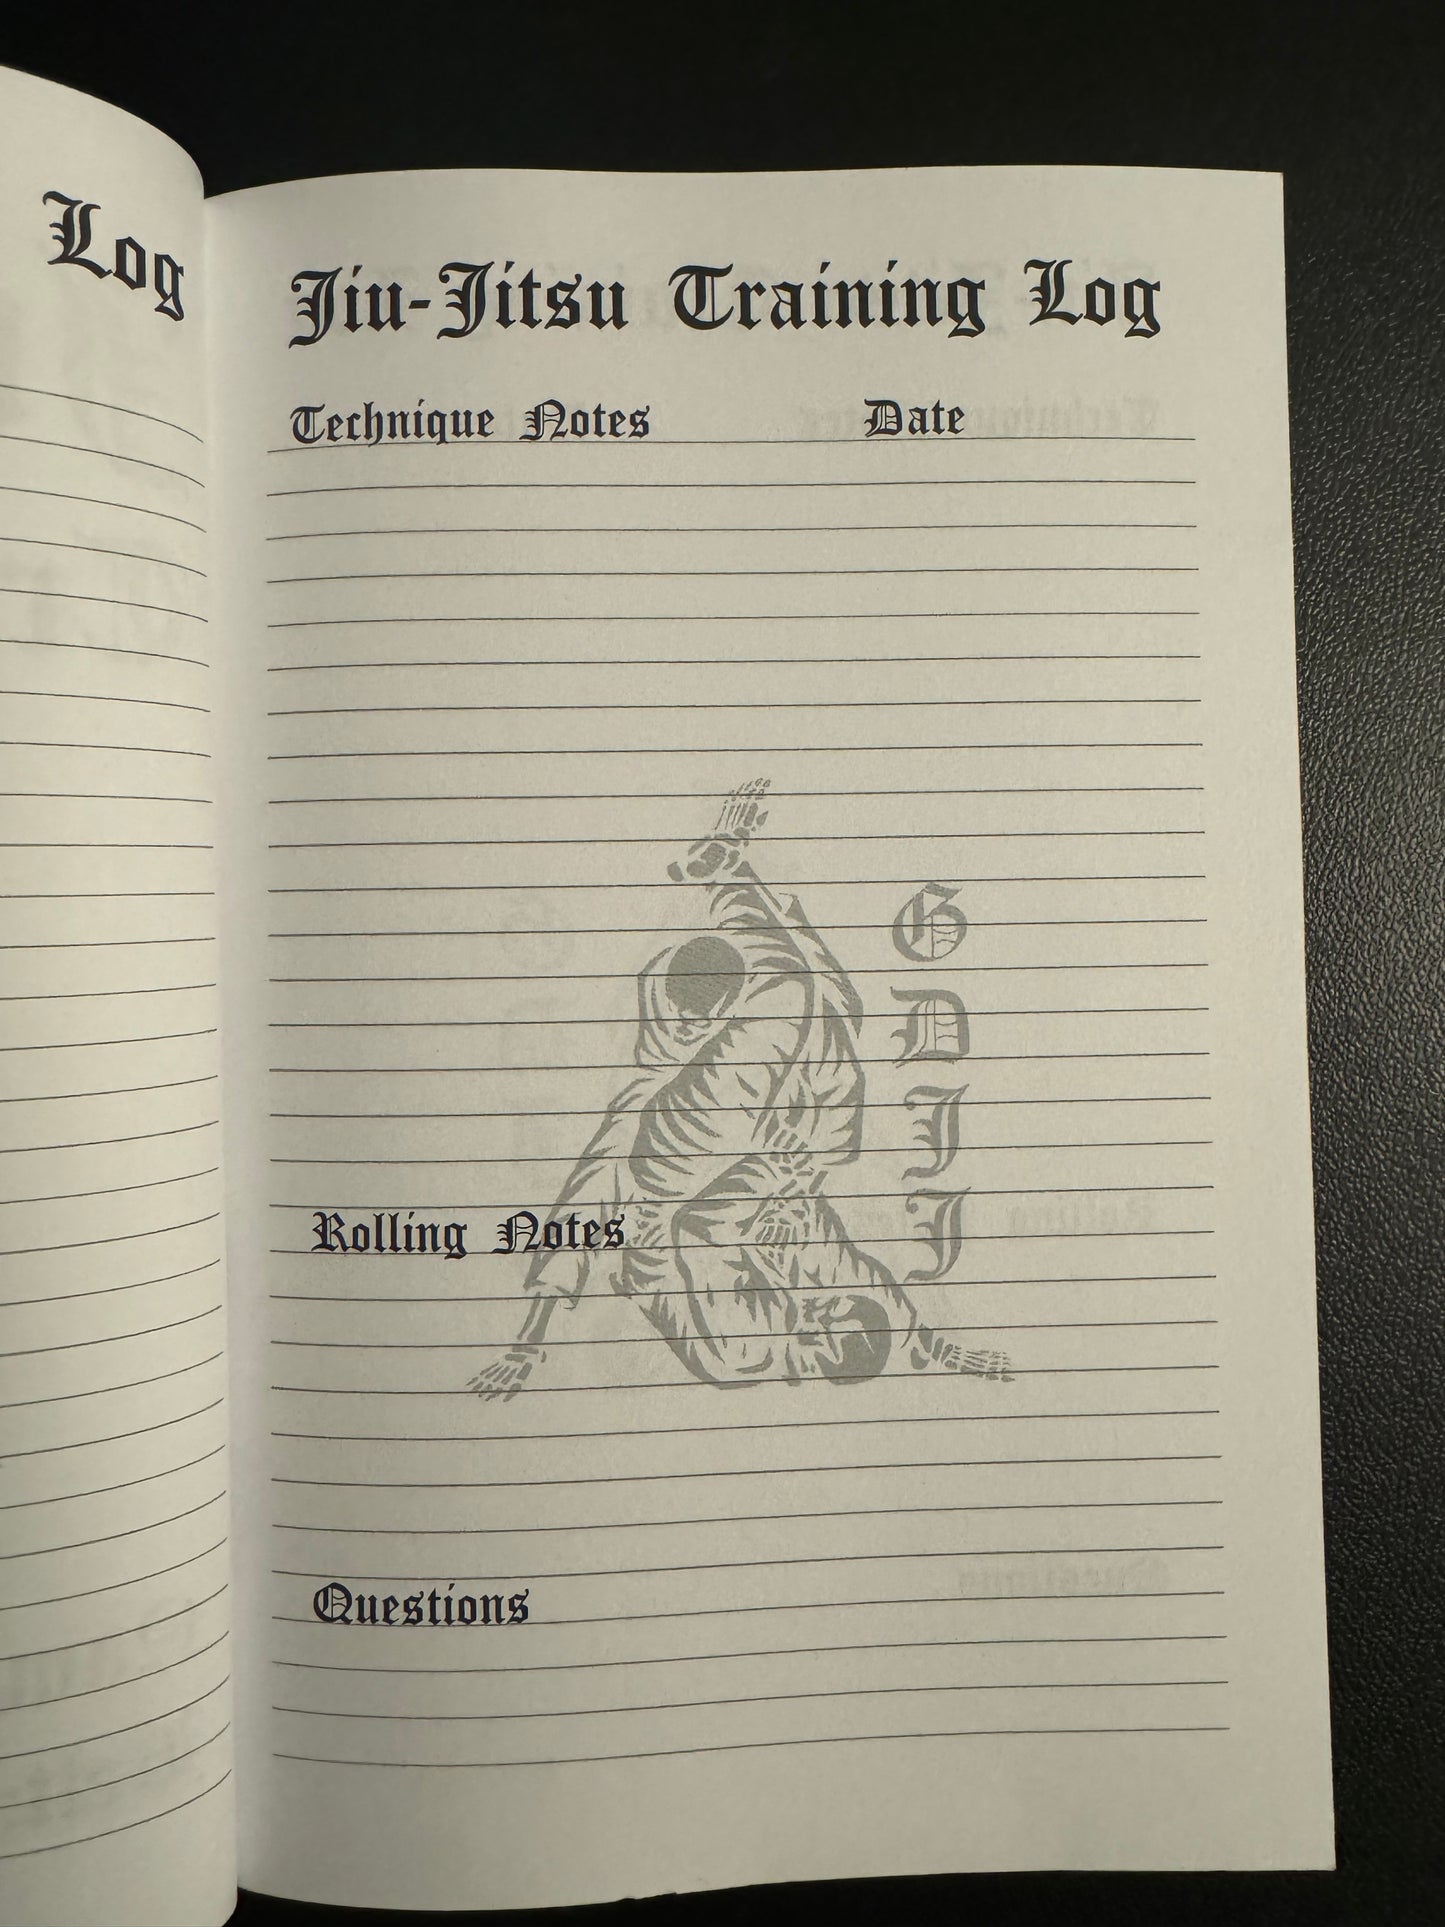 Log
Jiu-Jitsu Training Log
Technique Notes Date
G
D
J
J
Rolling Notes
Questions